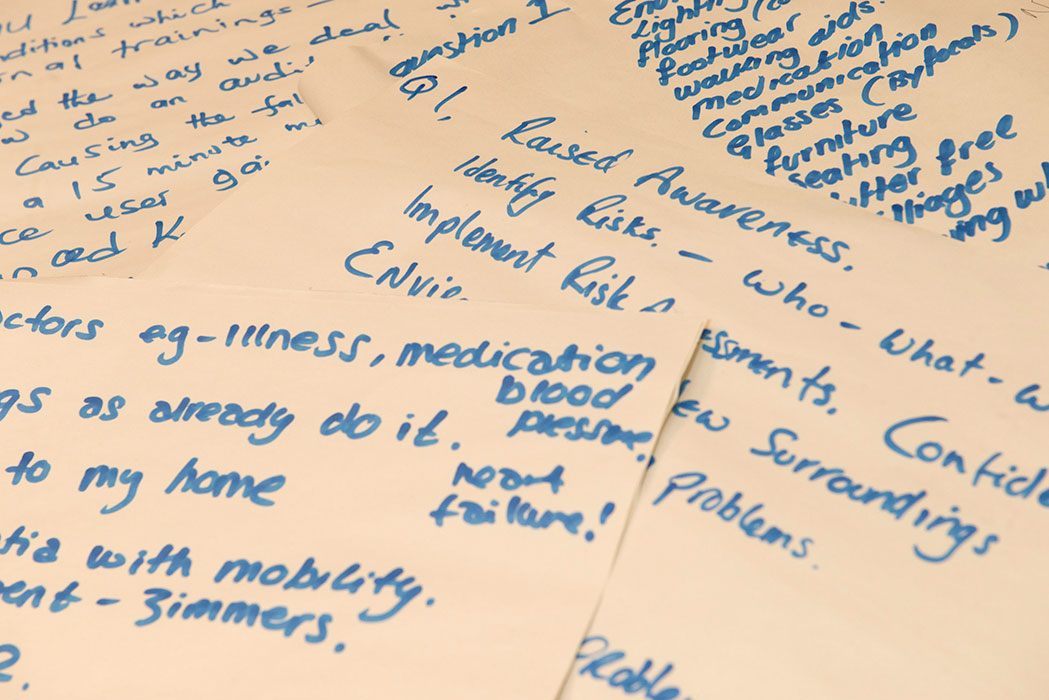 nditions which
nal trainings -
ged the way we deal
w do an audi
Causing the fal
a 15 minute m
ce user ga.
oed K
Question 1
Q1
Raised Awareness.
Identify Risks. - who - what - w
Implement Risk A
ssments. Confide
Envir
ew Surroundings
problems.
Proble
Lighting
flooring
footwear
walking aids.
medication
communication
Glasses (Byfocals)
furniture
seating
utter free
illiages
ing wh
ctors eg - Illness, medication
blood
pressure.
gs as already do it.
to my home
heart
failure!
tia with mobility.
ent - Zimmers.
2.